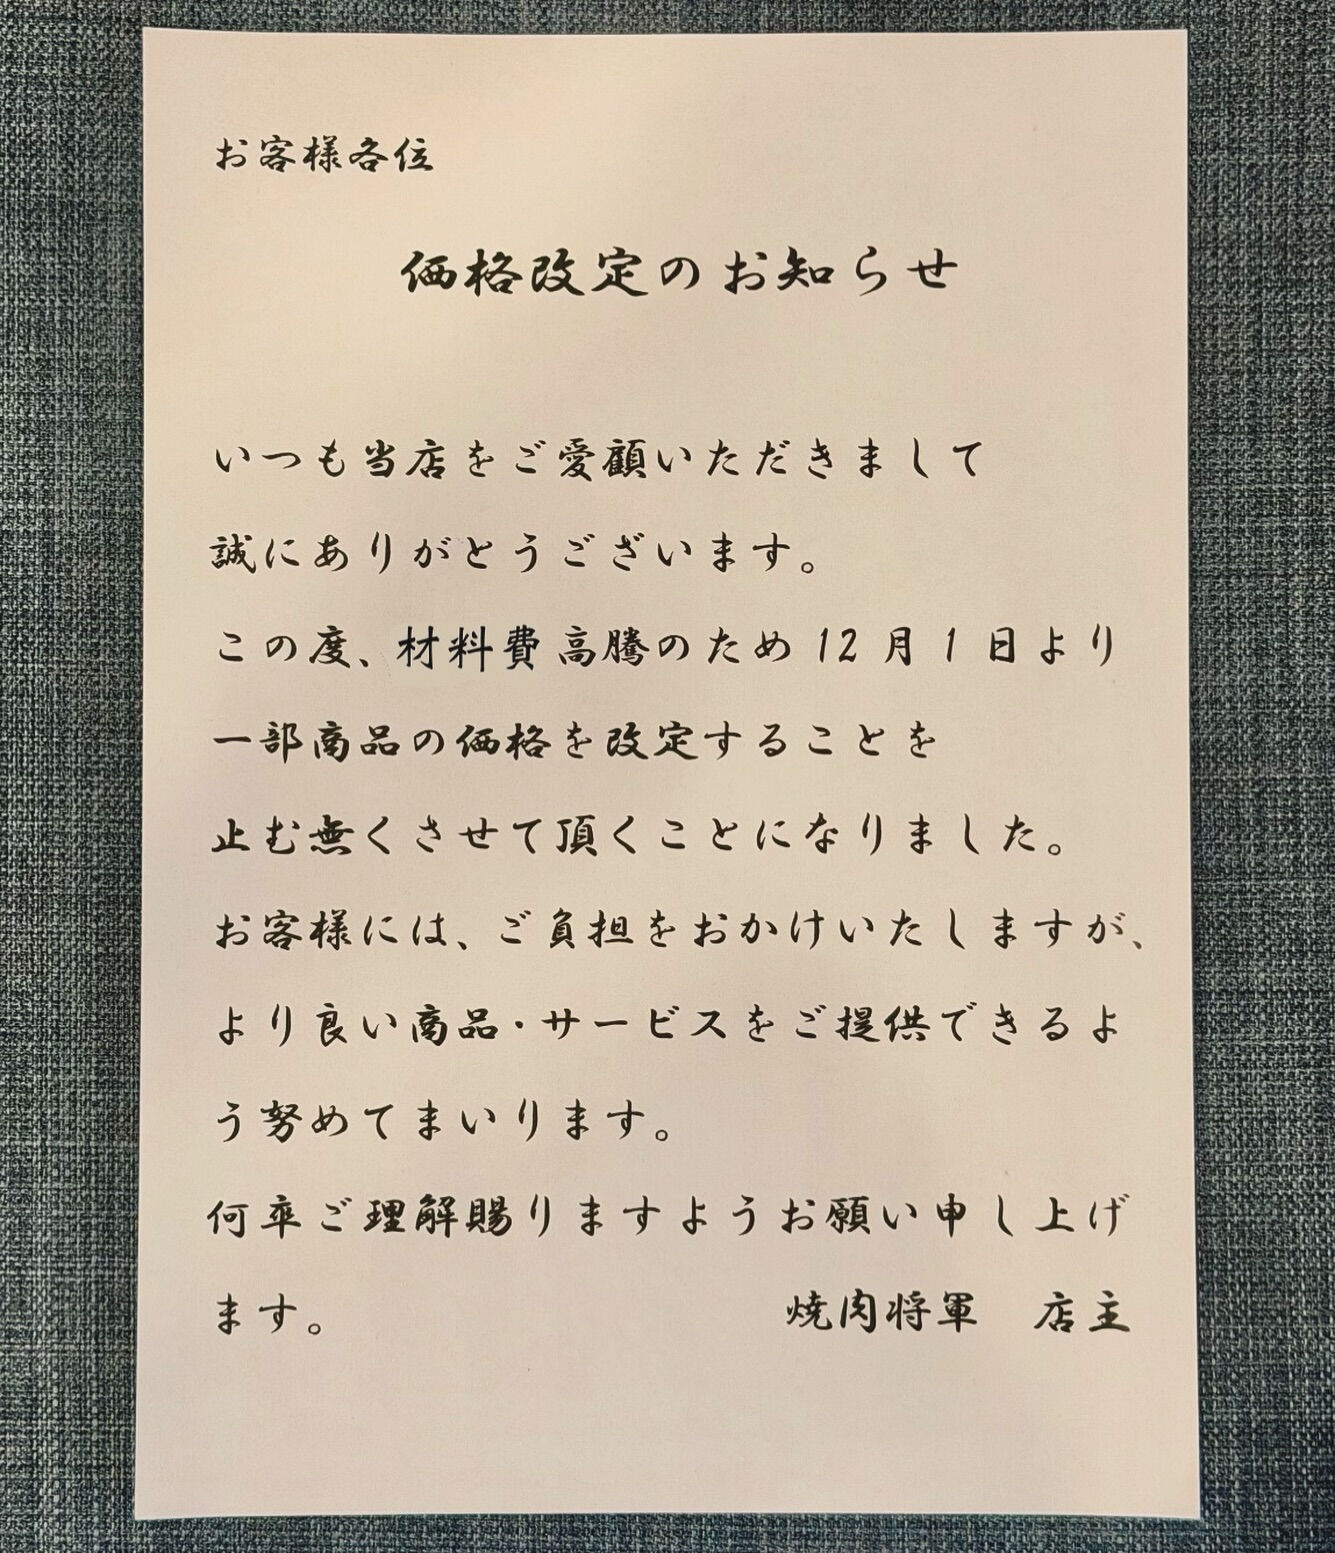 お客様各位
価格改定のお知らせ
いつも当店をご愛顧いただきまして
誠にありがとうございます。
この度、材料費高騰のため12月1日より
一部商品の価格を改定することを
止む無くさせて頂くことになりました。
お客様には、ご負担をおかけいたしますが、
より良い商品・サービスをご提供できるよ
う努めてまいります。
何卒ご理解賜りますようお願い申し上げ
ます。 焼肉将軍　店主